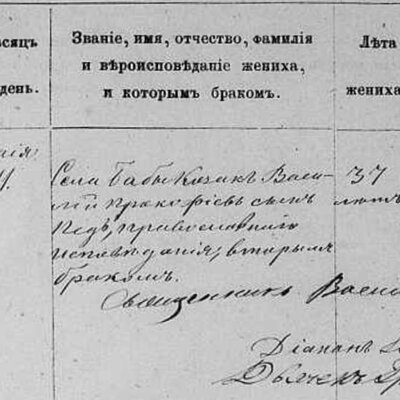 сяцъ
день.
Званіе, имя, отчество, фамилія
и вѣроисповѣданіе жениха,
и которымъ бракомъ.
Лѣта
жениха
Села Бабы Козакъ Васи-
лій Прокофіевъ сынъ
православнаго
исповѣданія, вторымъ
бракомъ.
37
лѣтъ
Священникъ Васил
Діаконъ
Дьячекъ